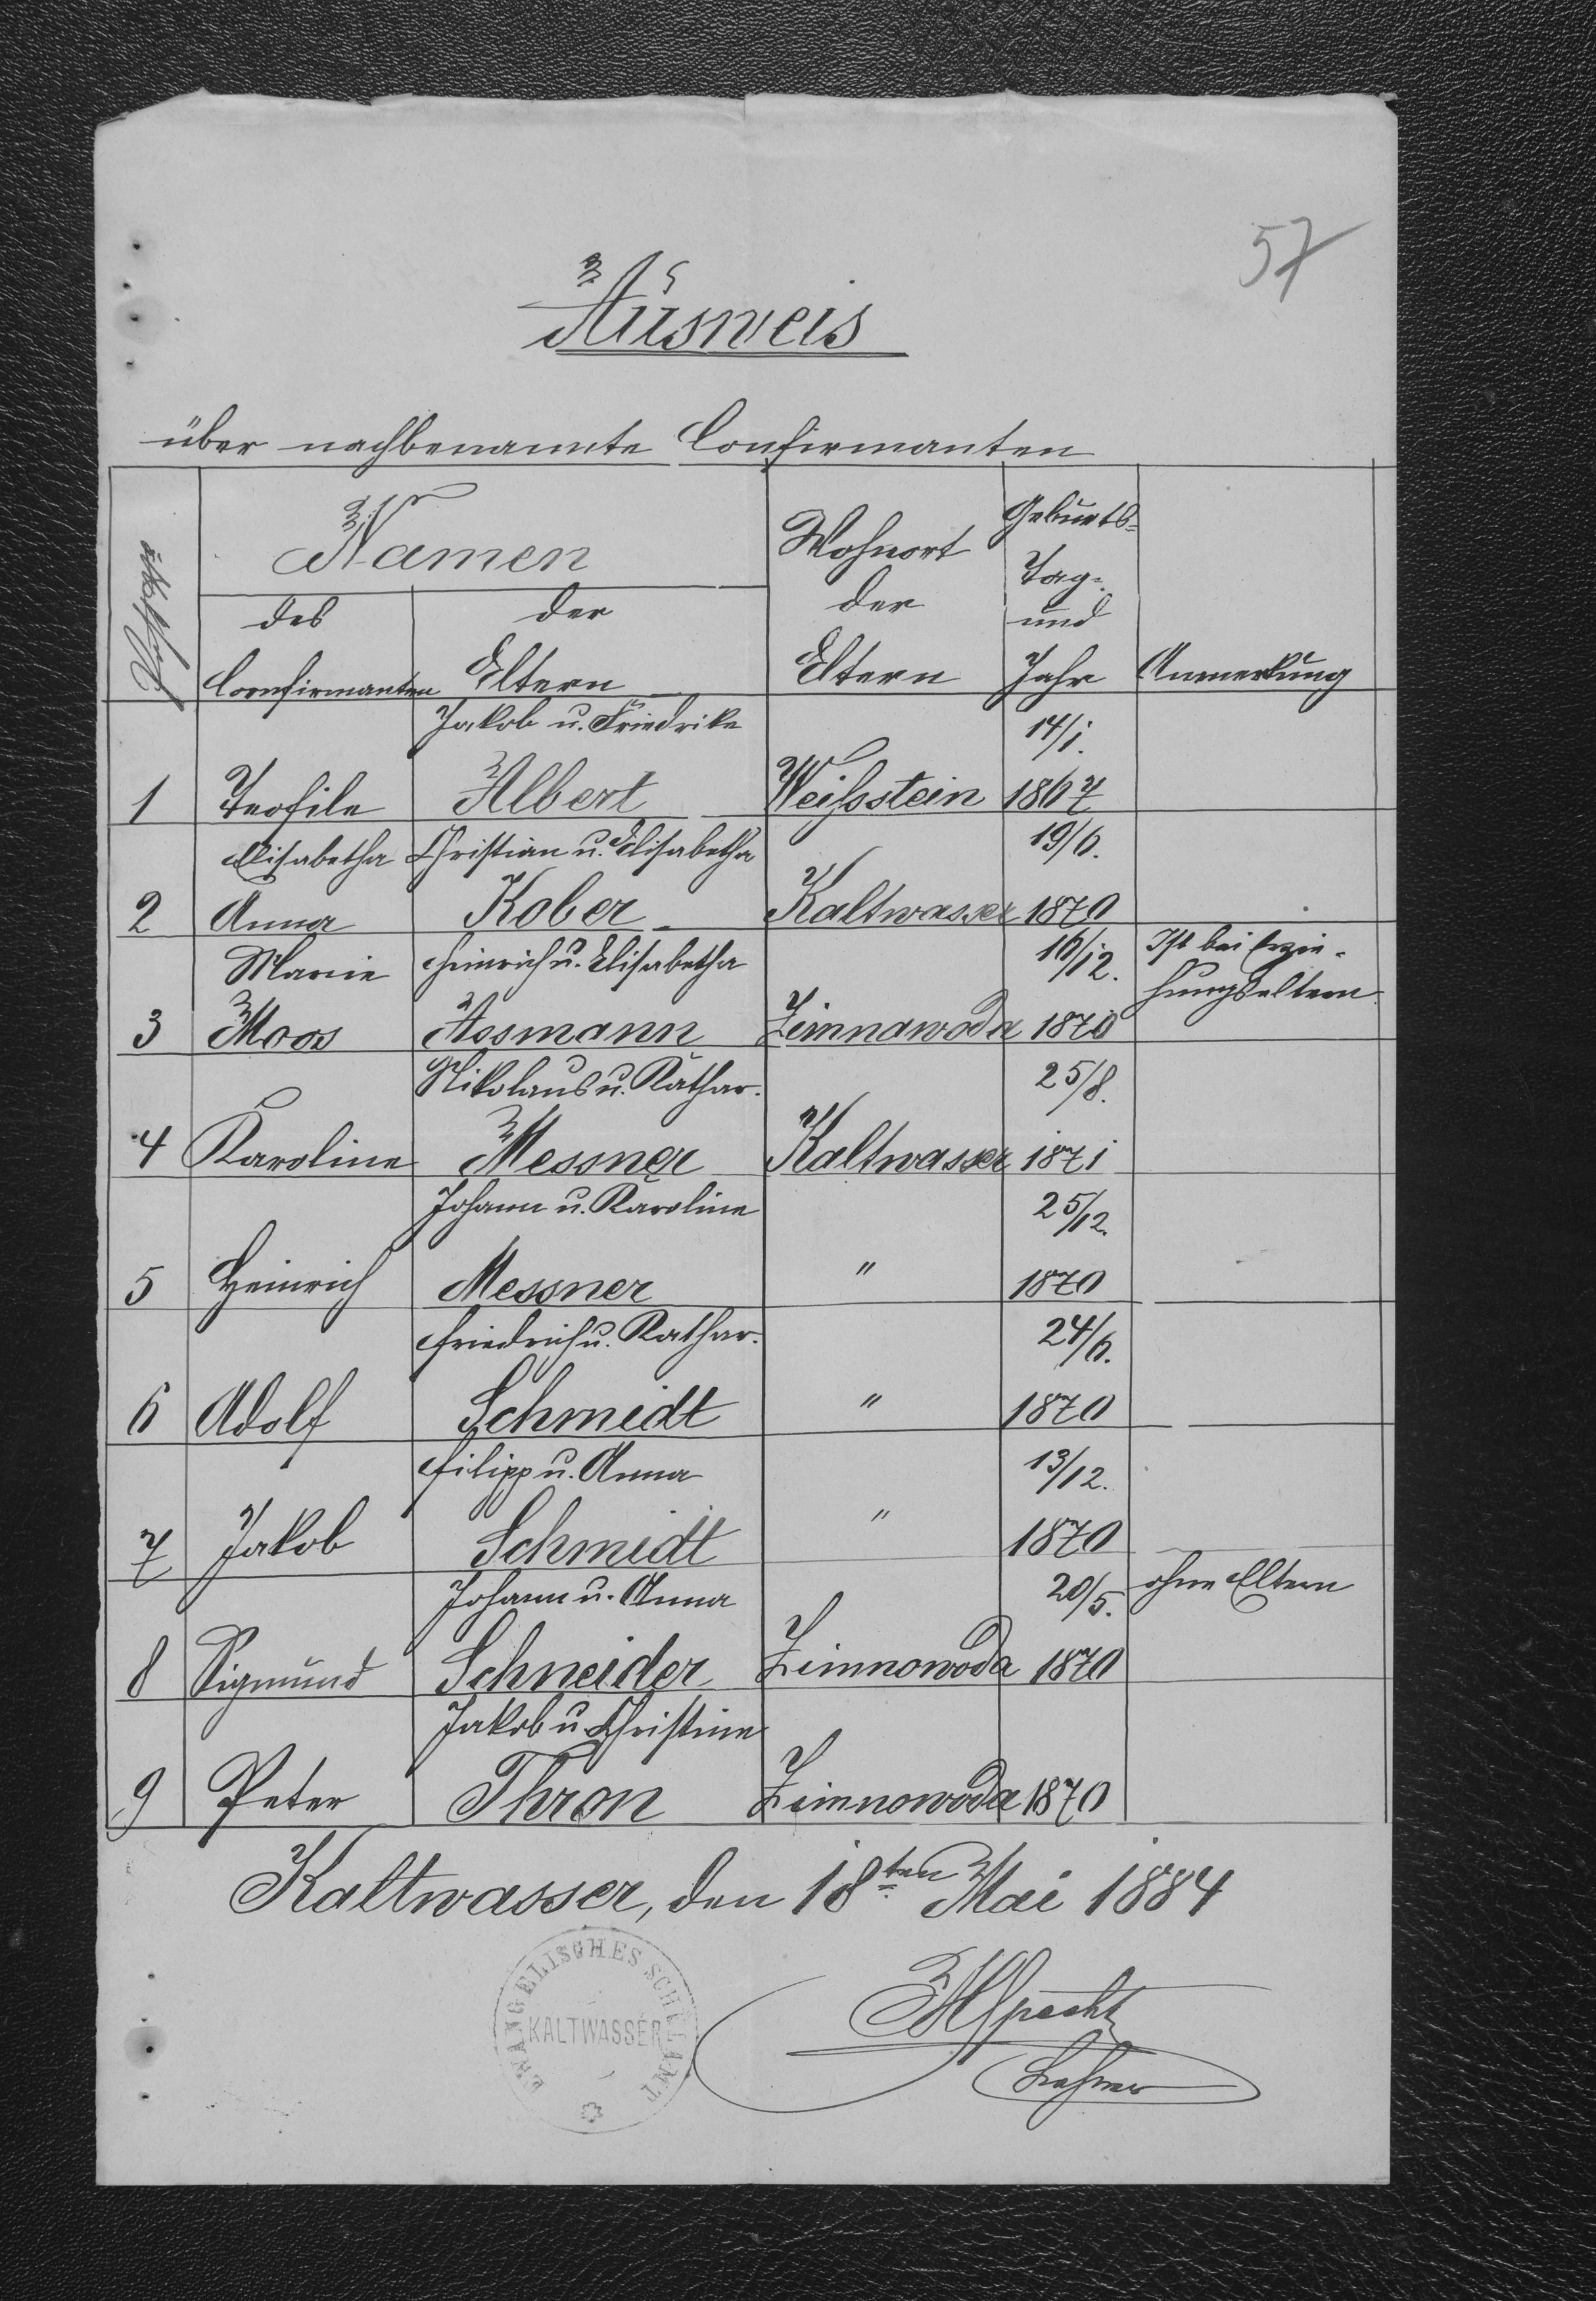 57
Ausweis
über nachbenannte Confirmanten
Post No
Namen
des Confirmanten
der Eltern
Wohnort der Eltern
Geburts-
Tag
und
Jahr
Anmerkung
Jakob u. Friedrike 14/1.
1 Teofile Albert Weißstein 1867
Elisabetha Christian u. Elisabetha 19/6.
2 Anna Kober Kaltwasser 1870
Marie Heinrich u. Elisabetha 16/12. Ist bei Erzie-
hungseltern
3 Moos Assmann Zimnawoda 1870
Nikolaus u. Kathar. 25/8.
4 Karoline Messner Kaltwasser 1871
Johann u. Karoline 25/12.
5 Heinrich Messner " 1870
Friedrich u. Kathar. 24/6.
6 Adolf Schmidt " 1870
Filipp u. Anna 13/12.
7 Jakob Schmidt " 1870
Johann u. Anna 20/5. ohne Eltern
8 Sigmund Schneider Zimnowoda 1870
Jakob u. Christine
9 Peter Thron Zimnowoda 1870
Kaltwasser, den 18ten Mai 1884
EVANGELISCHES SCHULAMT
KALTWASSER
Lehrer